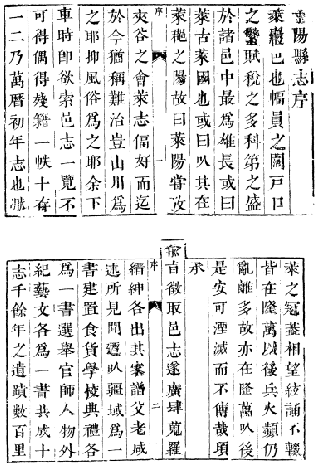 萊陽縣志序
萊巖邑也幅員之闊戶口
之蕃賦稅之多科第之盛
於諸邑中最為雄長或曰
萊古萊國也或曰以其在
萊之陽故曰萊陽嘗攷
序 一
夾谷之會萊志偪好而迄
於今猶稱難治豈山川為
之耶抑風俗為之耶余下
車時即欲索邑志一覽不
可得偶得殘籍一帙十存
一二乃萬曆初年志也然
萊之冠蓋相望絃誦不輟
皆在隆萬以後兵火頻仍
亂離多故亦在隆萬以後
是安可湮滅而不傳哉項
承
憲旨徵取邑志遂廣肆蒐羅
序 二
縉紳各出其家譜父老咸
述所見聞以疆域為一
書建置食貨學校典禮各
為一書選舉官師人物外
紀藝文各為一書共成十
志千餘年之遺蹟數百里